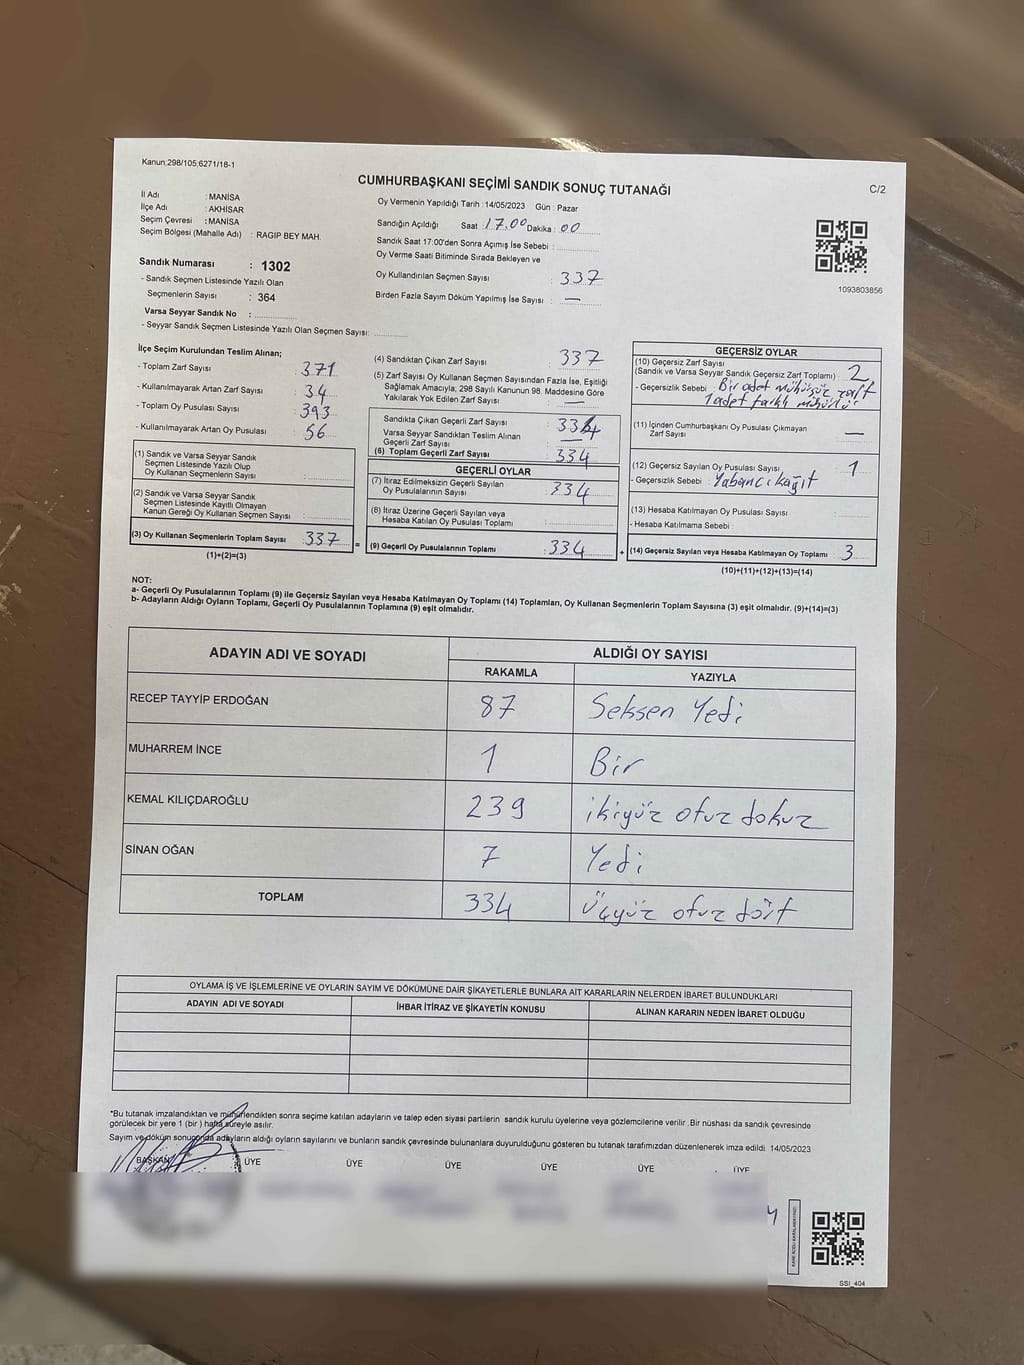 Kanun;298/105;6271/18-1
CUMHURBAŞKANI SEÇİMİ SANDIK SONUÇ TUTANAĞI
C/2
İl Adı : MANİSA
İlçe Adı : AKHİSAR
Seçim Çevresi : MANİSA
Seçim Bölgesi (Mahalle Adı) : RAGIP BEY MAH.
Oy Vermenin Yapıldığı Tarih : 14/05/2023 Gün : Pazar
Sandığın Açıldığı Saat 17.00 Dakika : 00
Sandık Saat 17:00'den Sonra Açımış İse Sebebi :
Oy Verme Saati Bitiminde Sırada Bekleyen ve
Oy Kullandırılan Seçmen Sayısı : 337
Birden Fazla Sayım Döküm Yapılmış İse Sayısı : —
1093803856
Sandık Numarası : 1302
- Sandık Seçmen Listesinde Yazılı Olan
Seçmenlerin Sayısı : 364
Varsa Seyyar Sandık No :
- Seyyar Sandık Seçmen Listesinde Yazılı Olan Seçmen Sayısı:
İlçe Seçim Kurulundan Teslim Alınan;
- Toplam Zarf Sayısı : 371
- Kullanılmayarak Artan Zarf Sayısı : 34
- Toplam Oy Pusulası Sayısı : 393
- Kullanılmayarak Artan Oy Pusulası : 56
(1) Sandık ve Varsa Seyyar Sandık
Seçmen Listesinde Yazılı Olup
Oy Kullanan Seçmenlerin Sayısı :
(2) Sandık ve Varsa Seyyar Sandık
Seçmen Listesinde Kayıtlı Olmayan
Kanun Gereği Oy Kullanan Seçmen Sayısı :
(3) Oy Kullanan Seçmenlerin Toplam Sayısı : 337
(1)+(2)=(3)
(4) Sandıktan Çıkan Zarf Sayısı : 337
(5) Zarf Sayısı Oy Kullanan Seçmen Sayısından Fazla İse, Eşitliği
Sağlamak Amacıyla, 298 Sayılı Kanunun 98. Maddesine Göre
Yakılarak Yok Edilen Zarf Sayısı : —
Sandıkta Çıkan Geçerli Zarf Sayısı : 334
Varsa Seyyar Sandıktan Teslim Alınan
Geçerli Zarf Sayısı : —
(6) Toplam Geçerli Zarf Sayısı : 334
GEÇERLİ OYLAR
(7) İtiraz Edilmeksizin Geçerli Sayılan
Oy Pusulalarının Sayısı : 334
(8) İtiraz Üzerine Geçerli Sayılan veya
Hesaba Katılan Oy Pusulası Toplamı :
= (9) Geçerli Oy Pusulalarının Toplamı : 334
GEÇERSİZ OYLAR
(10) Geçersiz Zarf Sayısı
(Sandık ve Varsa Seyyar Sandık Geçersiz Zarf Toplamı) : 2
- Geçersizlik Sebebi : Bir adet mühürsüz zarf
1 adet farklı mühürlü
(11) İçinden Cumhurbaşkanı Oy Pusulası Çıkmayan
Zarf Sayısı : —
(12) Geçersiz Sayılan Oy Pusulası Sayısı : 1
- Geçersizlik Sebebi : Yabancı kağıt
(13) Hesaba Katılmayan Oy Pusulası Sayısı :
- Hesaba Katılmama Sebebi :
+ (14) Geçersiz Sayılan veya Hesaba Katılmayan Oy Toplamı : 3
(10)+(11)+(12)+(13)=(14)
NOT:
a- Geçerli Oy Pusulalarının Toplamı (9) ile Geçersiz Sayılan veya Hesaba Katılmayan Oy Toplamı (14) Toplamları, Oy Kullanan Seçmenlerin Toplam Sayısına (3) eşit olmalıdır. (9)+(14)=(3)
b- Adayların Aldığı Oyların Toplamı, Geçerli Oy Pusulalarının Toplamına (9) eşit olmalıdır.
ADAYIN ADI VE SOYADI
ALDIĞI OY SAYISI
RAKAMLA YAZIYLA
RECEP TAYYİP ERDOĞAN 87 Seksen Yedi
MUHARREM İNCE 1 Bir
KEMAL KILIÇDAROĞLU 239 ikiyüz otuz dokuz
SİNAN OĞAN 7 Yedi
TOPLAM 334 Üçyüz otuz dört
OYLAMA İŞ VE İŞLEMLERİNE VE OYLARIN SAYIM VE DÖKÜMÜNE DAİR ŞİKAYETLERLE BUNLARA AİT KARARLARIN NELERDEN İBARET BULUNDUKLARI
ADAYIN ADI VE SOYADI İHBAR İTİRAZ VE ŞİKAYETİN KONUSU ALINAN KARARIN NEDEN İBARET OLDUĞU
*Bu tutanak imzalandıktan ve mühürlendikten sonra seçime katılan adayların ve talep eden siyasi partilerin sandık kurulu üyelerine veya gözlemcilerine verilir. Bir nüshası da sandık çevresinde
görülecek bir yere 1 (bir ) hafta süreyle asılır.
Sayım ve döküm sonuçunda adayların aldığı oyların sayılarını ve bunların sandık çevresinde bulunanlara duyurulduğunu gösteren bu tutanak tarafımızdan düzenlenerek imza edildi. 14/05/2023
BAŞKAN ÜYE ÜYE ÜYE ÜYE ÜYE ÜYE
SSI_404